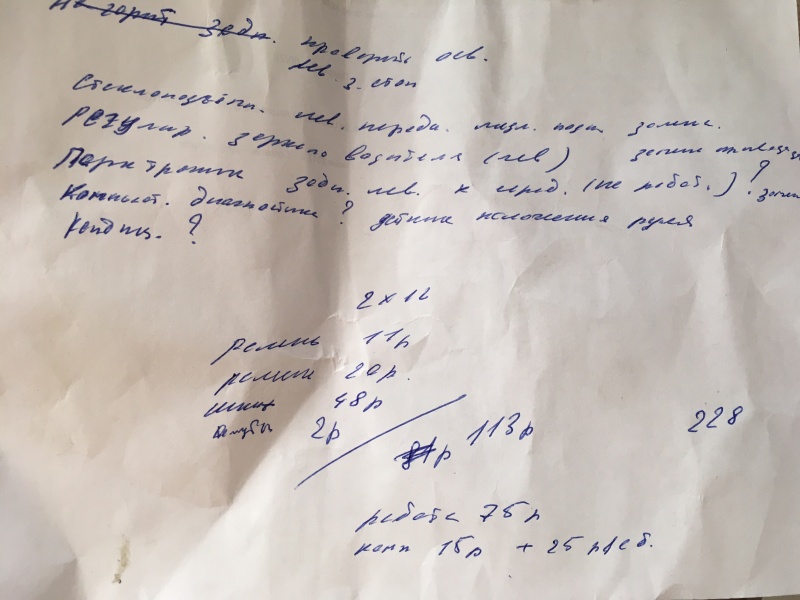 Не горит задн. проверить осв.
лев. з. стоп
Стеклоподъёмн. лев. передн.
Регулир. зеркало водителя (лев)
Парктроник задн. лев. к серед. (не работ.) ?
Компьют. диагностика ? датчик положения руля
Кондиц. ?
2 x 12
ремень 11р
ролики 20р.
шкив 48р
2р
81р 113р 228
работа 75р
комп 15р + 25р